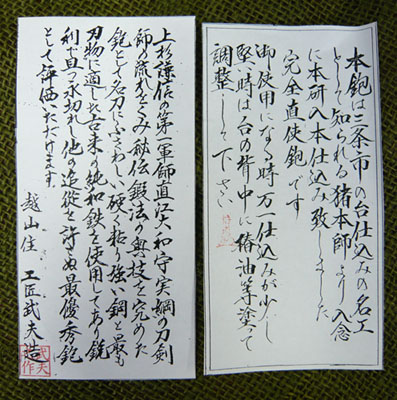 本鉋は三条市の台仕込みの名工
として知られる猪本師より入念
に本研入本仕込み致しました
完全直使鉋です
御使用になる時万一仕込みが少し
堅い時は台の背中に椿油等塗って
調整して下さい
上杉謙信の第一軍師直江大和守実綱の刀剣
師の流れをくみ秘伝鍛法の奥技を究めた
鉋として名刀にふさわしい硬く粘り強い鋼と最も
刃物に適した古来の純和鉄を使用してあり鋭
利で且つ永切れし他の追従を許さぬ最優秀鉋
として評価いただけます
越山住 工匠武夫造
武夫作